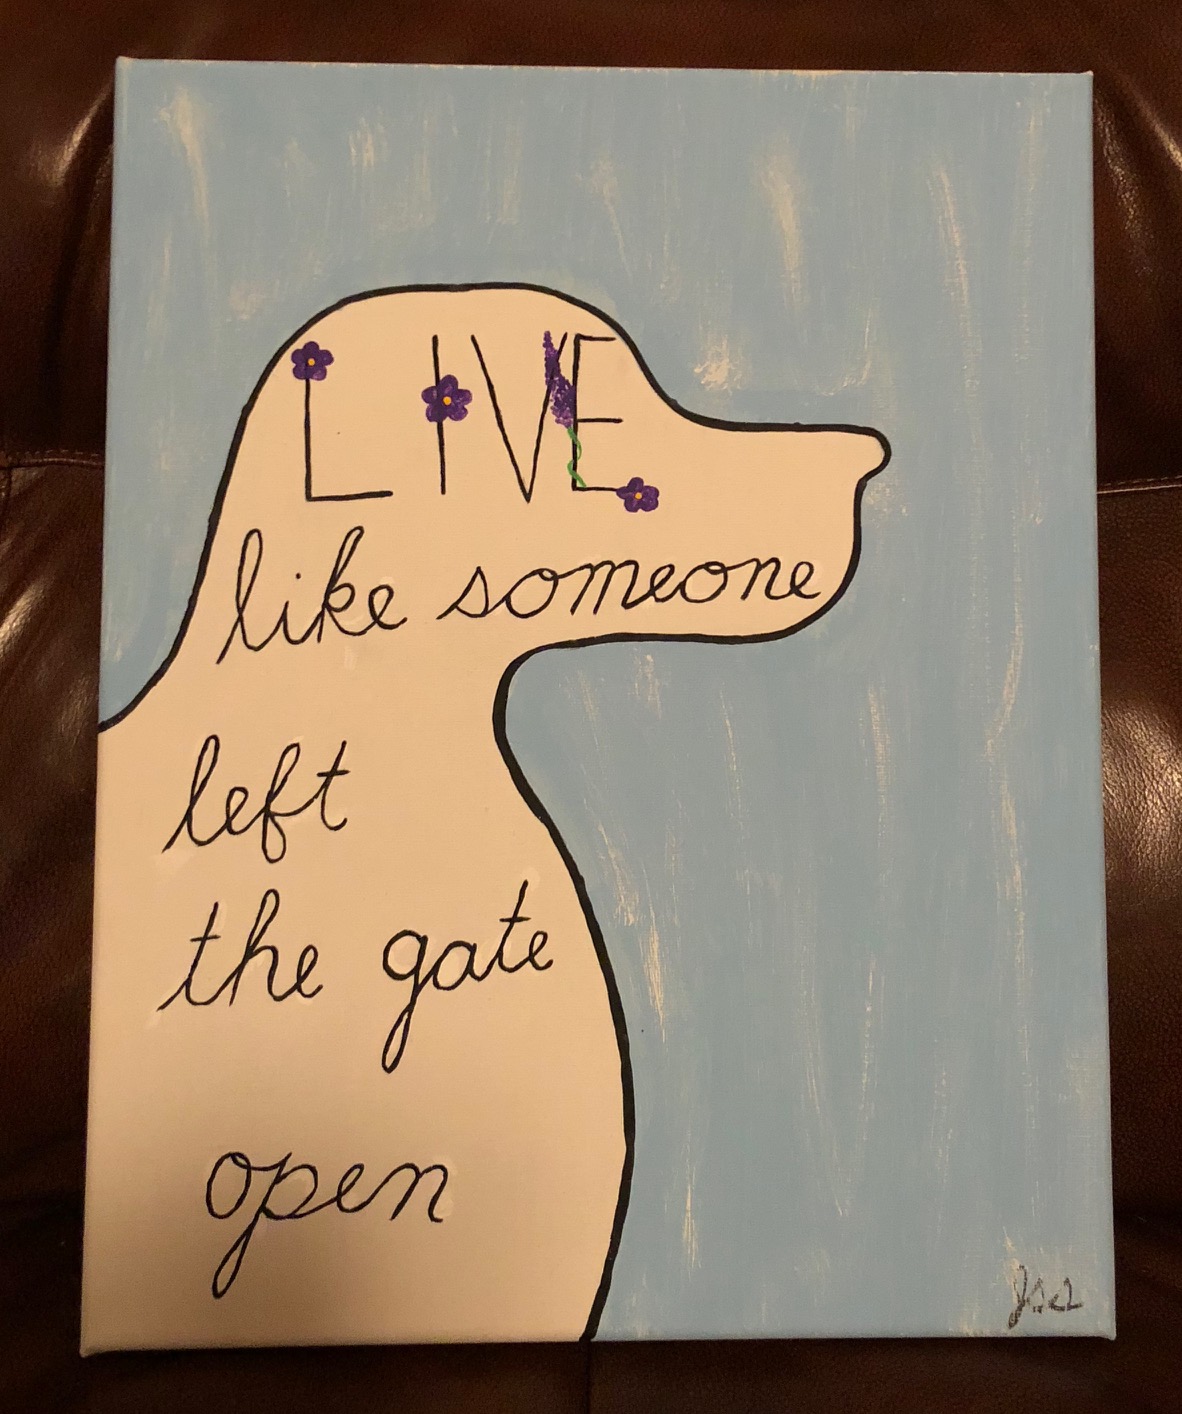 LIVE
like someone
left
the gate
open